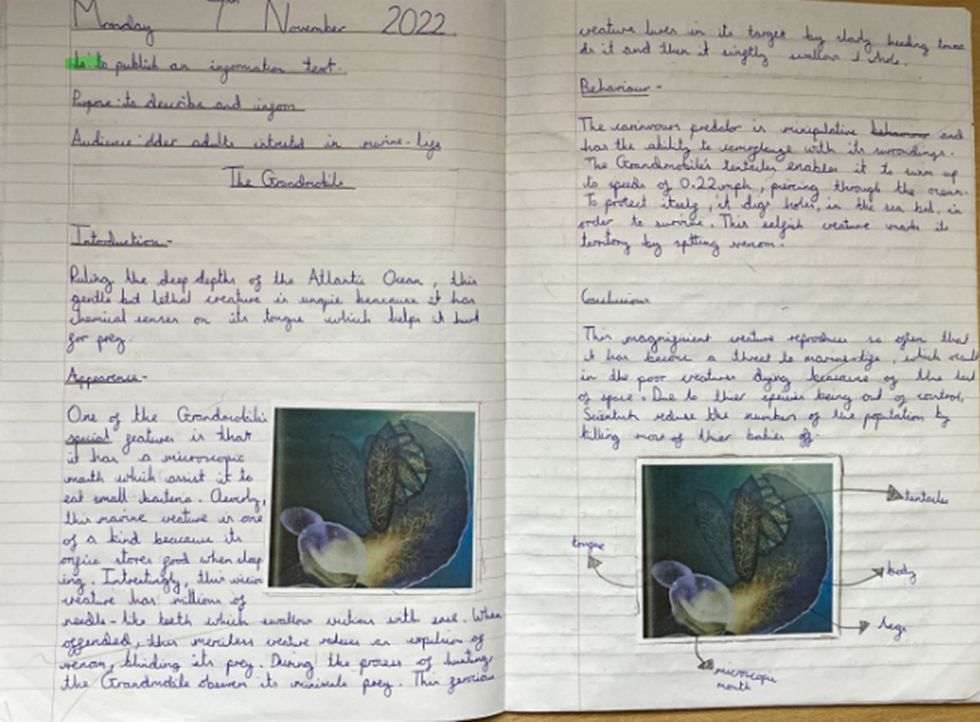 Monday 7th November 2022
Ls: to publish an information text.
Purpose: to describe and inform
Audience: older adults intrested in marine-life
The Grandmobile
Introduction-
Ruling the deep depths of the Atlantic Ocean, this
gentle but lethal creature is unqie beacause it has
chemical senses on its tongue which helps it hunt
for prey.
Appearence-
One of the Grandmobile's
special features is that
it has a microscopic
mouth which assist it to
eat small bacteria. Cleverly,
this marine creature is one
of a kind beacause its
orgice stores food when sleep
ing. Intrestingly, this vicious
creature has millions of
needle-like teeth which swallow victims with ease. When
offended, this merciless creature reduces an expulsion of
venom, blinding its prey. During the process of hunting
the Grandmobile observes its miniscule prey. This ferocious
creature lures in its target by slowly heading towar
ds it and then it swiftly swallows it whole.
Behaviour-
The carnivours predator is minipulative behaviour and
has the ability to camoflauge with its surroundings.
The Grandmobile's tentacles enables it to swim up
to speeds of 0.22mph, piercing through the ocean.
To protect itself, it digs holes, in the sea bed, in
order to survive. This selfish creature marks its
territory by spitting venom.
Conclusion
This magnificient creature reproduces so often that
it has become a threat to marine-life, which result
in the poor creatures dying beacause of the lack
of space. Due to thier species being out of control,
Scientists reduce the numbers of the population by
killing most of thier babies off.
tentacles
tongue
body
legs
microscopic
mouth